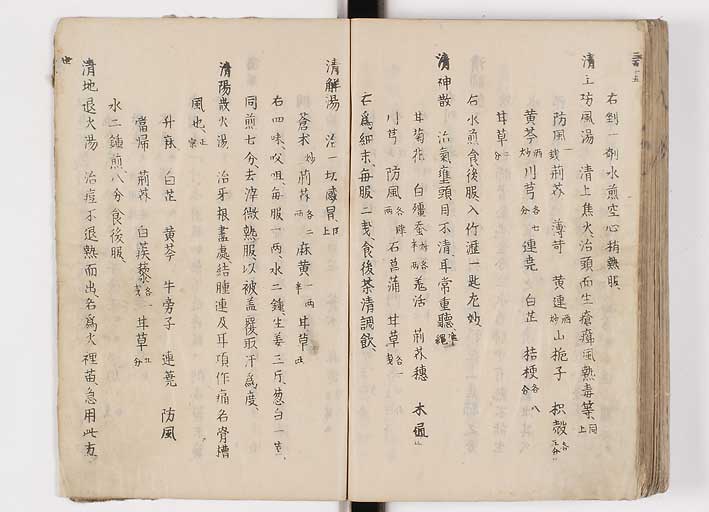 右剉一剤水煎空心稍熱服
清上防風湯 清上焦火治頭面生瘡癤風熱毒等 同上
防風一戔荊芥 薄苛 黄連酒炒山梔子 枳殻各五分
黄芩酒炒川芎各七分 連堯 白芷 桔梗各八分
甘草三分
右水煎食後服入竹瀝一匙尤妙
清神散 治氣壅頭目不清耳常重聽
甘菊花 白殭蚕炒各半両羗活 荊芥穂 木通
川芎 防風各四両 石菖蒲 甘草各一戔
右為細末毎服二戔食後茶清調飲
清解湯 治一切感冒 同上
蒼朮炒 荊芥各二両 麻黄一両半 甘草
右四味㕮咀毎服一両水二鍾生姜三斤葱白一莖
同煎七分去滓微熱服以被盖覆取汗為度
清陽散火湯 治牙根盡處結腫連及耳項作痛名骨槽
風也
升麻 白芷 黄芩 牛旁子 連堯 防風
當歸 荊芥 白蒺藜各一戔 甘草五分
水二鍾煎八分食後服
清地退火湯 治痘不退熱而出名為火裡苗急用此方